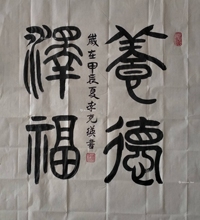 養德
澤福
歲在甲辰夏李光瑛書